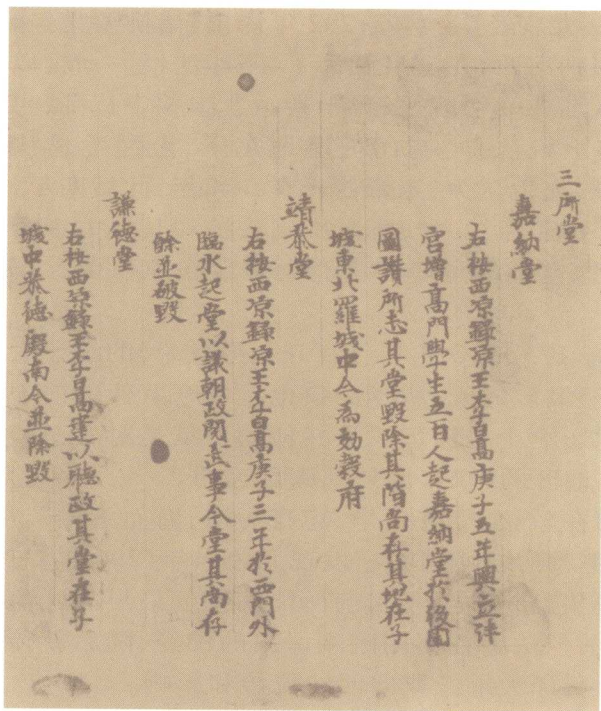 三所堂
嘉納堂
右按西涼錄涼王李暠庚子五年興立泮
宮增高門學生五百人起嘉納堂於後園
圖讚所志其堂毀除其階尚存其地在子
城東北羅城中今為効穀府
靖恭堂
右按西涼錄涼王李暠庚子三年於西門外
臨水起堂以議朝政閱武事今堂其尚存
餘並破毀
謙德堂
右按西涼錄王李暠建以聽政其堂在子
城中恭德殿南今並除毀